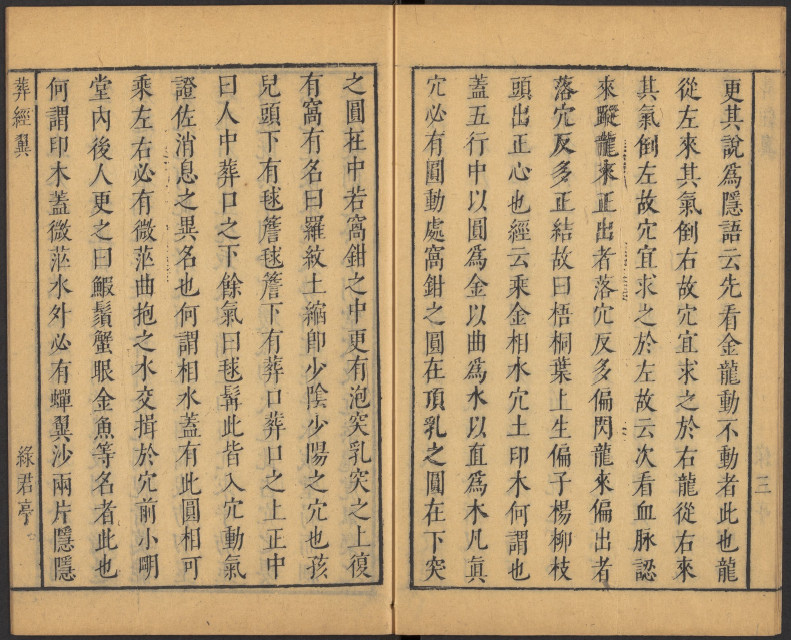 更其說爲隱語云先看金龍動不動者此也龍
從左來其氣倒右故穴宜求之於右龍從右來
其氣倒左故穴宜求之於左故云次看血脉認
來蹤龍來正出者落穴反多偏閃龍來偏出者
落穴反多正結故曰梧桐葉上生偏子楊柳枝
頭出正心也經云乘金相水穴土印木何謂也
蓋五行中以圓爲金以曲爲水以直爲木凡眞
穴必有圓動處窩鉗之圓在頂乳之圓在下突
三
之圓在中若窩鉗之中更有泡突乳突之上復
有窩有名曰羅紋土縮卽少陰少陽之穴也孩
兒頭下有毬簷毬簷下有葬口葬口之上正中
曰人中葬口之下餘氣曰毬髯此皆入穴動氣
證佐消息之異名也何謂相水蓋有此圓相可
乘左右必有微茫曲抱之水交揖於穴前小明
堂內後人更之曰鰕鬚蟹眼金魚等名者此也
何謂印木蓋微茫水外必有蟬翼沙兩片隱隱
葬經翼
綠君亭